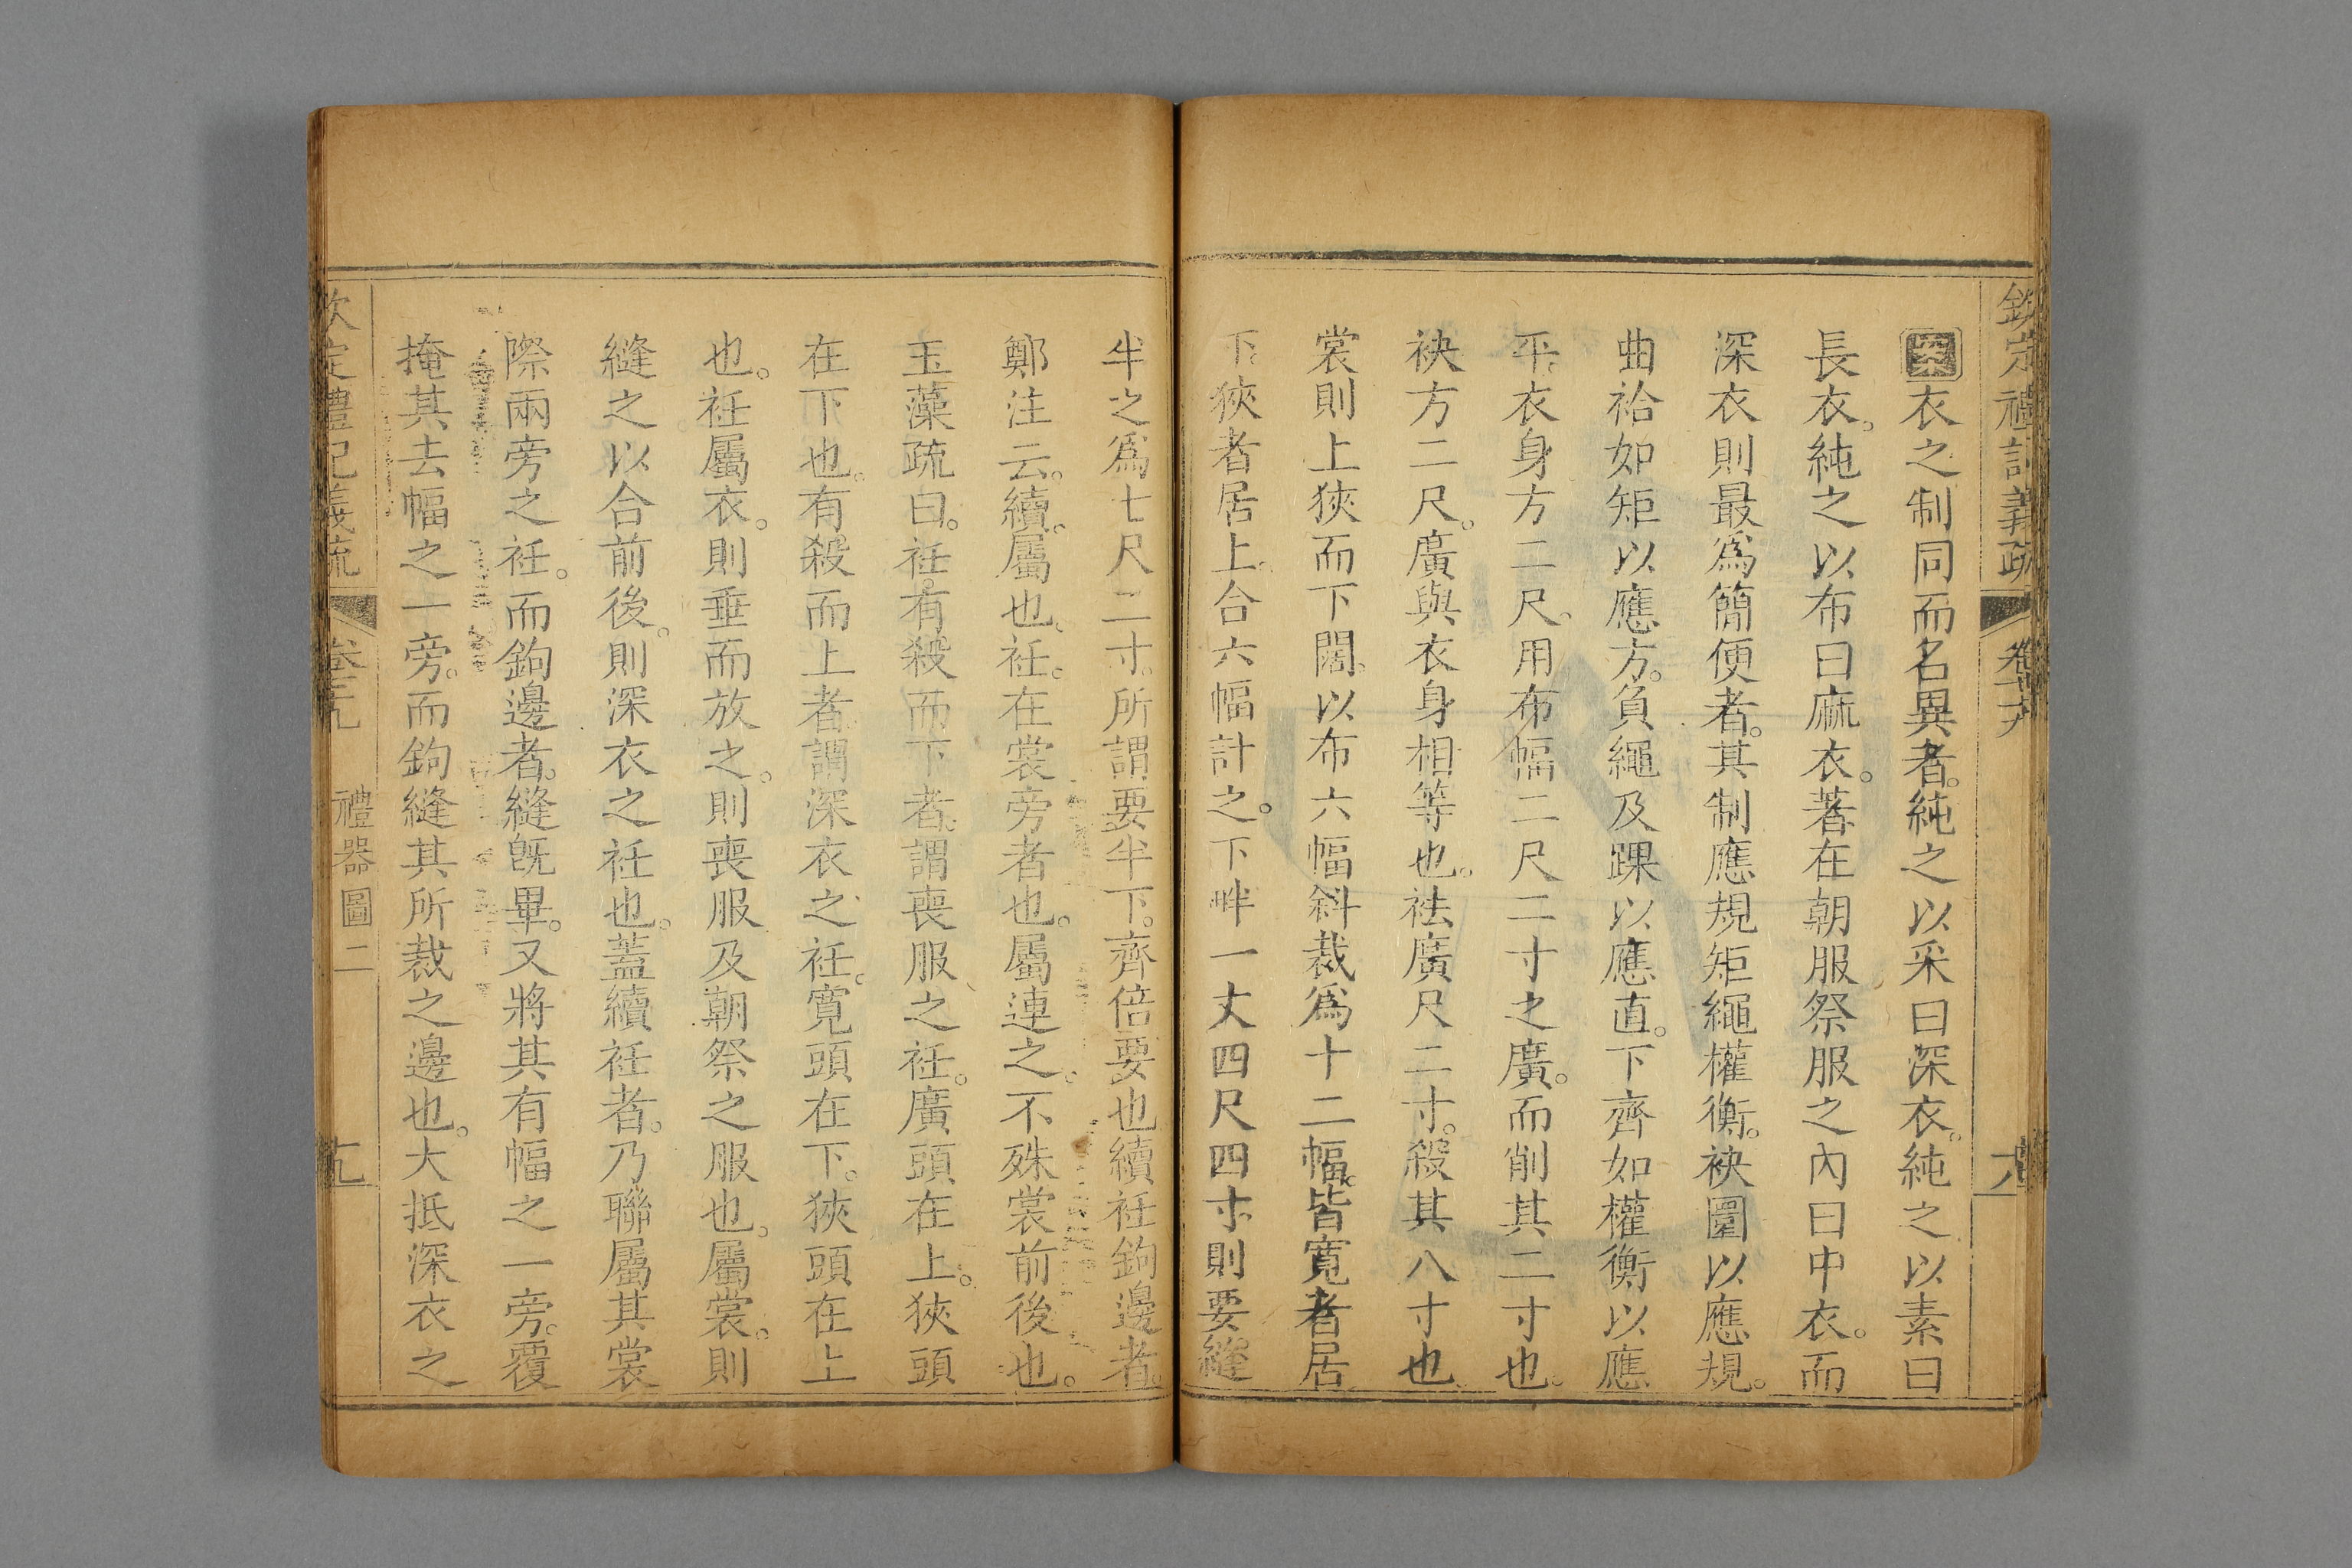 欽定禮記義疏
案衣之制同而名異者。純之以采曰深衣。純之以素曰
長衣。純之以布曰麻衣。著在朝服祭服之內曰中衣。而
深衣則最爲簡便者。其制應規矩繩權衡。袂圜以應規。
曲袷如矩以應方。負繩及踝以應直。下齊如權衡以應
平。衣身方二尺。用布幅二尺二寸之廣。而削其二寸也。
袂方二尺。廣與衣身相等也。袪廣尺二寸。殺其八寸也。
裳則上狹而下闊。以布六幅斜裁爲十二幅。皆寬者居
下。狹者居上。合六幅計之。下畔一丈四尺四寸。則要縫
半之爲七尺二寸。所謂要半下。齊倍要也續衽鉤邊者。
鄭注云。續。屬也。衽。在裳旁者也。屬連之。不殊裳前後也。
玉藻疏曰。衽。有殺而下者。謂喪服之衽。廣頭在上。狹頭
在下也。有殺而上者。謂深衣之衽。寬頭在下。狹頭在上
也。衽屬衣。則垂而放之。則喪服及朝祭之服也。屬裳。則
縫之以合前後。則深衣之衽也。蓋續衽者。乃聯屬其裳
際兩旁之衽。而鉤邊者。縫旣畢。又將其有幅之一旁。覆
掩其去幅之一旁。而鉤縫其所裁之邊也。大抵深衣之
欽定禮記義疏
禮器圖二